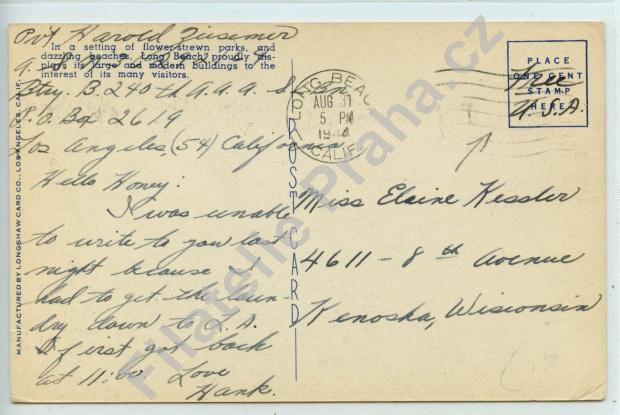 Pvt Harold Ziesemer
In a setting of flower-strewn parks, and
dazzling beaches, Long Beach proudly dis-
plays its large and modern buildings to the
interest of its many visitors.
Btry. B. 240 th A.A.A. S. Bn
P.O. Box 2619
Los Angeles, (54) California
Hello Honey:
I was unable
to write to you last
night because I
had to get the laun-
dry down to L.A.
I first got back
at 11:00. Love
Hank.
MANUFACTURED BY LONGSHAW CARD CO., LOS ANGELES, CALIF.
POST CARD
LONG BEACH
AUG 31
5 PM
1944
CALIF.
PLACE
ONE CENT
STAMP
HERE
Free
U.S.A.
Miss Elaine Kessler
4611 - 8 th Avenue
Kenosha, Wisconsin
Filatelie Praha.cz